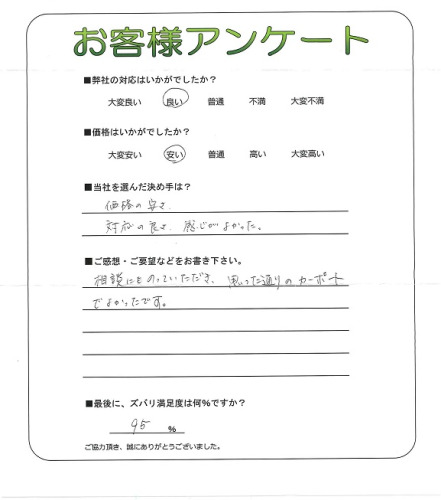 お客様アンケート
■弊社の対応はいかがでしたか?
大変良い 良い 普通 不満 大変不満
■価格はいかがでしたか?
大変安い 安い 普通 高い 大変高い
■当社を選んだ決め手は?
価格の安さ、
対応の良さ、感じがよかった。
■ご感想・ご要望などをお書き下さい。
相談にものっていただき、思った通りのカーポート
でよかったです。
■最後に、ズバリ満足度は何%ですか?
95 %
ご協力頂き、誠にありがとうございました。